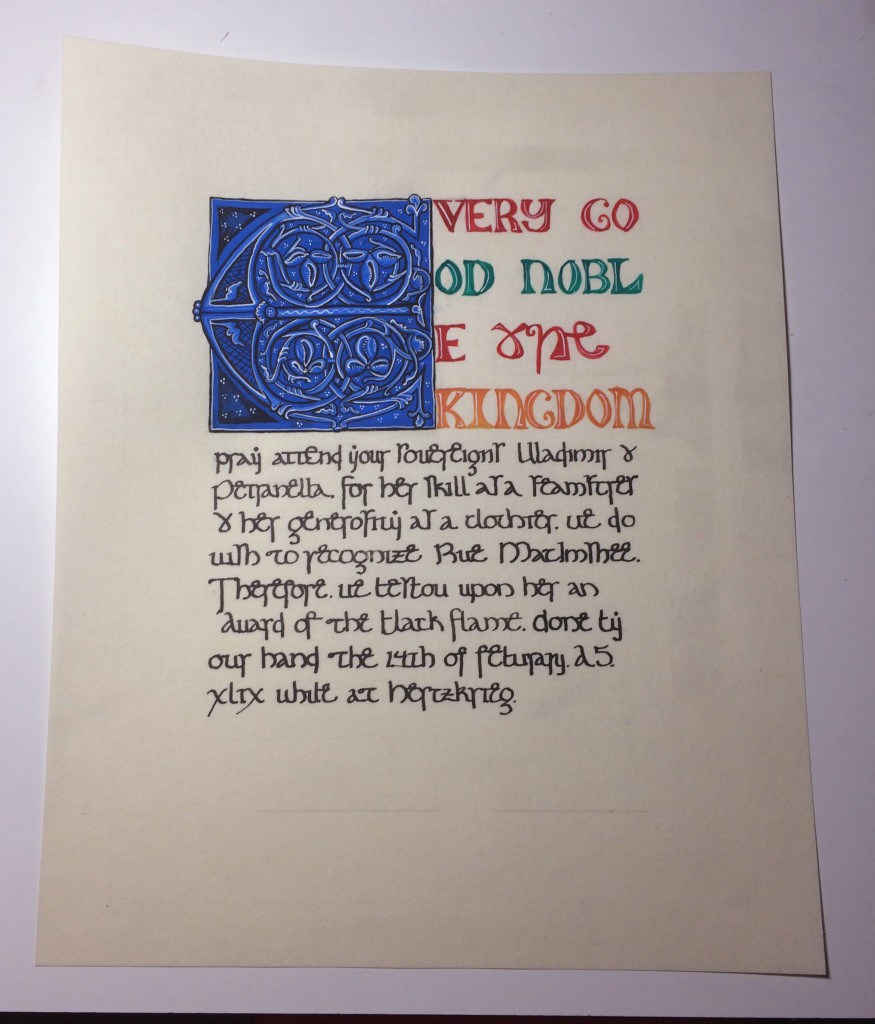 EVERY GO
OD NOBL
E
KINGDOM
pray attend your sovereigns Vladimir &
Petranella. for her skill as a seamster
& her generosity as a clothier. we do
wish to recognize Rue MacImshee.
Therefore. we bestow upon her an
Award of the black flame. done by
our hand the 14th of february. A.S.
xlix while at hertzkrieg.